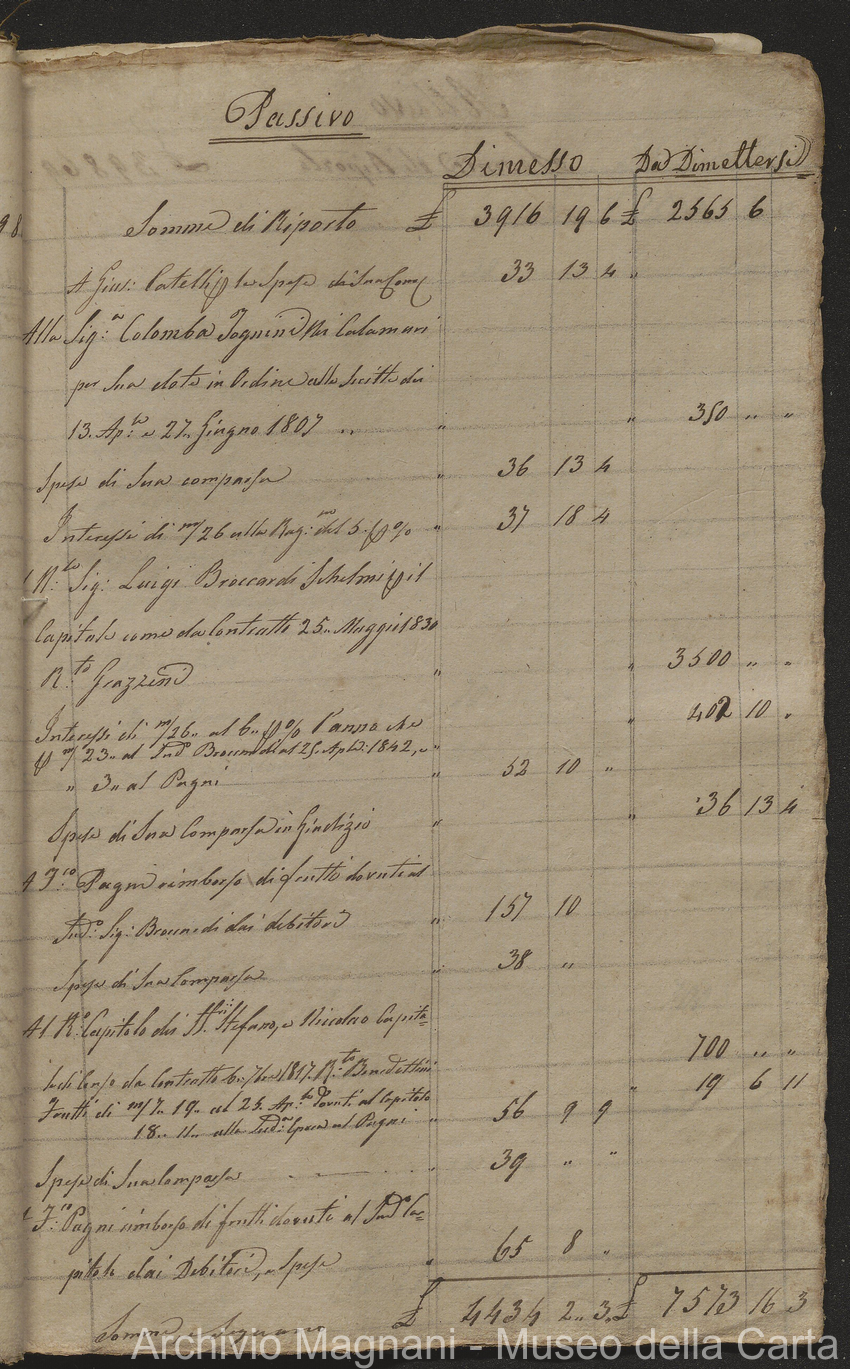 Passivo
Dimesso Da Dimettersi
98
Somme di Riporto £ 3916 19 6 £ 2565 6
A Gius: Catelli le Spese di Sua Com 33 13 4 "
Alla Sig:a Colomba Tognini Calamari
per Sua dote in Ordine alle Scritte dei
13. Ap:le e 27. Giugno 1807 " " 350 " "
Spese di Sua comparsa " 36 13 4
Interessi di m/26 alla Rag:ne del 5. p% " 37 18 4
R:to Sig: Luigi Broccardi Schelmi p il
Capitale come da Contratto 25. Maggio 1830
R:to Grazzini " " 3500 " "
Interessi di m/26. al 6. p% l'anno che " 402 10 "
p m/23. al Sud:o Broccardi al 25. Aple: 1842, e "
" 3. al Pagni " 52 10 "
Spese di Sua Comparsa in Giudizio " " 36 13 4
A F:co Pagni rimborso di frutti dovuti al
Sud:o Sig: Broccardi dai debitori " 157 10
Spese di Sua Comparsa " 38 "
Al R:o Capitolo dei SS:ti Stefano, e Niccolao Capita=
le di Censo da Contratto 6. 7bre 1817. R:to Benedettini 700 " "
Frutti di m/7. 19. al 25. Ap:le dovuti al Capitolo " 19 6 11
18. 11. alla Sud:a Epoca al Pagni " 56 9 9
Spese di Sua Comparsa " 39 " "
F:co Pagni rimborso di frutti dovuti al Sud:o Ca=
pitolo dai Debitori, e Spese " 65 8 "
Somma e Segue £ 4434 2 " 3 " £ 7573 16 3
Archivio Magnani - Museo della Carta